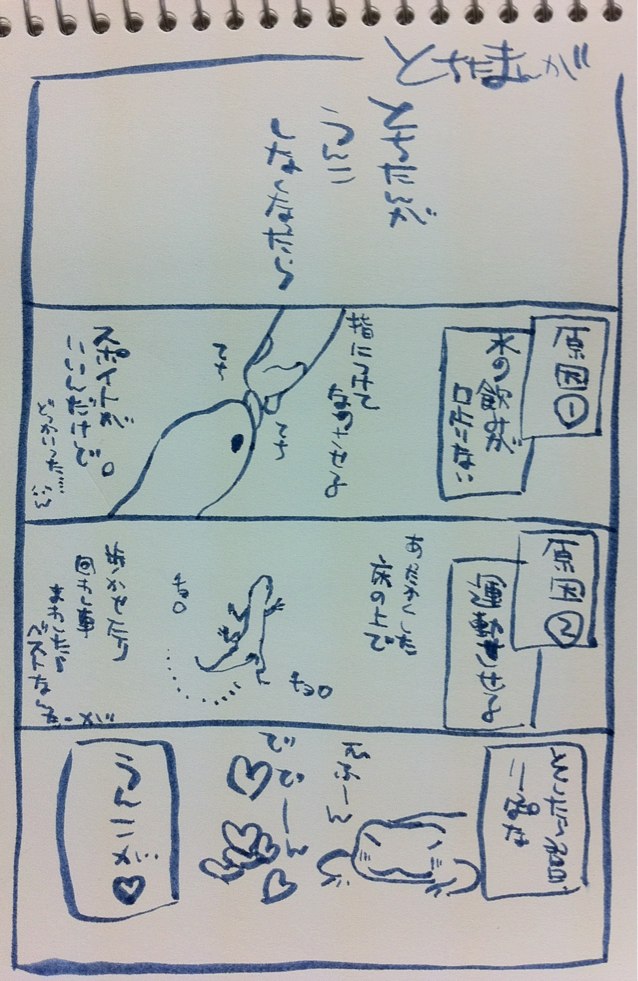 とちたまんが
とちたんが
うんこ
しなくなったら
原因①
水の飲みが
足りない
指につけて
なめさせる
てち
てち
スポイトが
いいんだけど。
どっかいった……
原因②
運動させる
あたたかくした
床の上で
チョロ
チョロ
歩かせたり
回し車
まわしたら
ベストなんだーが
そしたら翌日
リッパな
えふーん
でで〜ん
うんこが♡